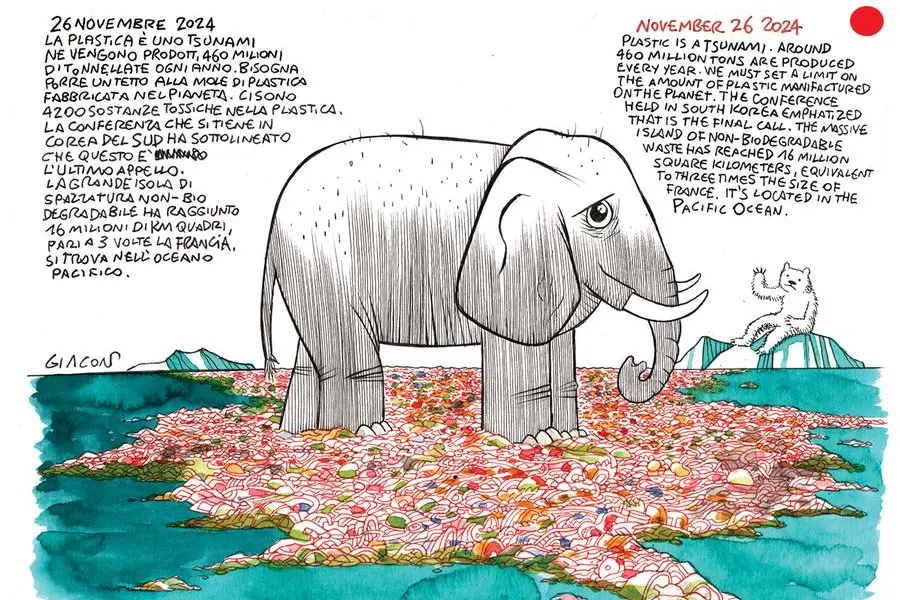 26 NOVEMBRE 2024
LA PLASTICA È UNO TSUNAMI
NE VENGONO PRODOTT, 460 MILIONI
DI TONNELLATE OGNI ANNO. BISOGNA
PORRE UN TETTO ALLA MOLE DI PLASTICA
FABBRICATA NEL PIANETA. CI SONO
4200 SOSTANZE TOSSICHE NELLA PLASTICA.
LA CONFERENZA CHE SI TIENE IN
COREA DEL SUD HA SOTTOLINEATO
CHE QUESTO È
L'ULTIMO APPELLO.
LA GRANDE ISOLA DI
SPAZZATURA NON-BIO
DEGRADABILE HA RAGGIUNTO
16 MILIONI DI KM QUADRI,
PARI A 3 VOLTE LA FRANCIA.
SI TROVA NELL'OCEANO
PACIFICO.
NOVEMBER 26 2024
PLASTIC IS A TSUNAMI. AROUND
460 MILLION TONS ARE PRODUCED
EVERY YEAR. WE MUST SET A LIMIT ON
THE AMOUNT OF PLASTIC MANIFACTURED
ON THE PLANET. THE CONFERENCE
HELD IN SOUTH KOREA EMPHATIZED
THAT IS THE FINAL CALL. THE MASSIVE
ISLAND OF NON-BIODEGRADABLE
WASTE HAS REACHED 16 MILLION
SQUARE KILOMETERS, EQUIVALENT
TO THREE TIMES THE SIZE OF
FRANCE. IT'S LOCATED IN THE
PACIFIC OCEAN.
GIACON